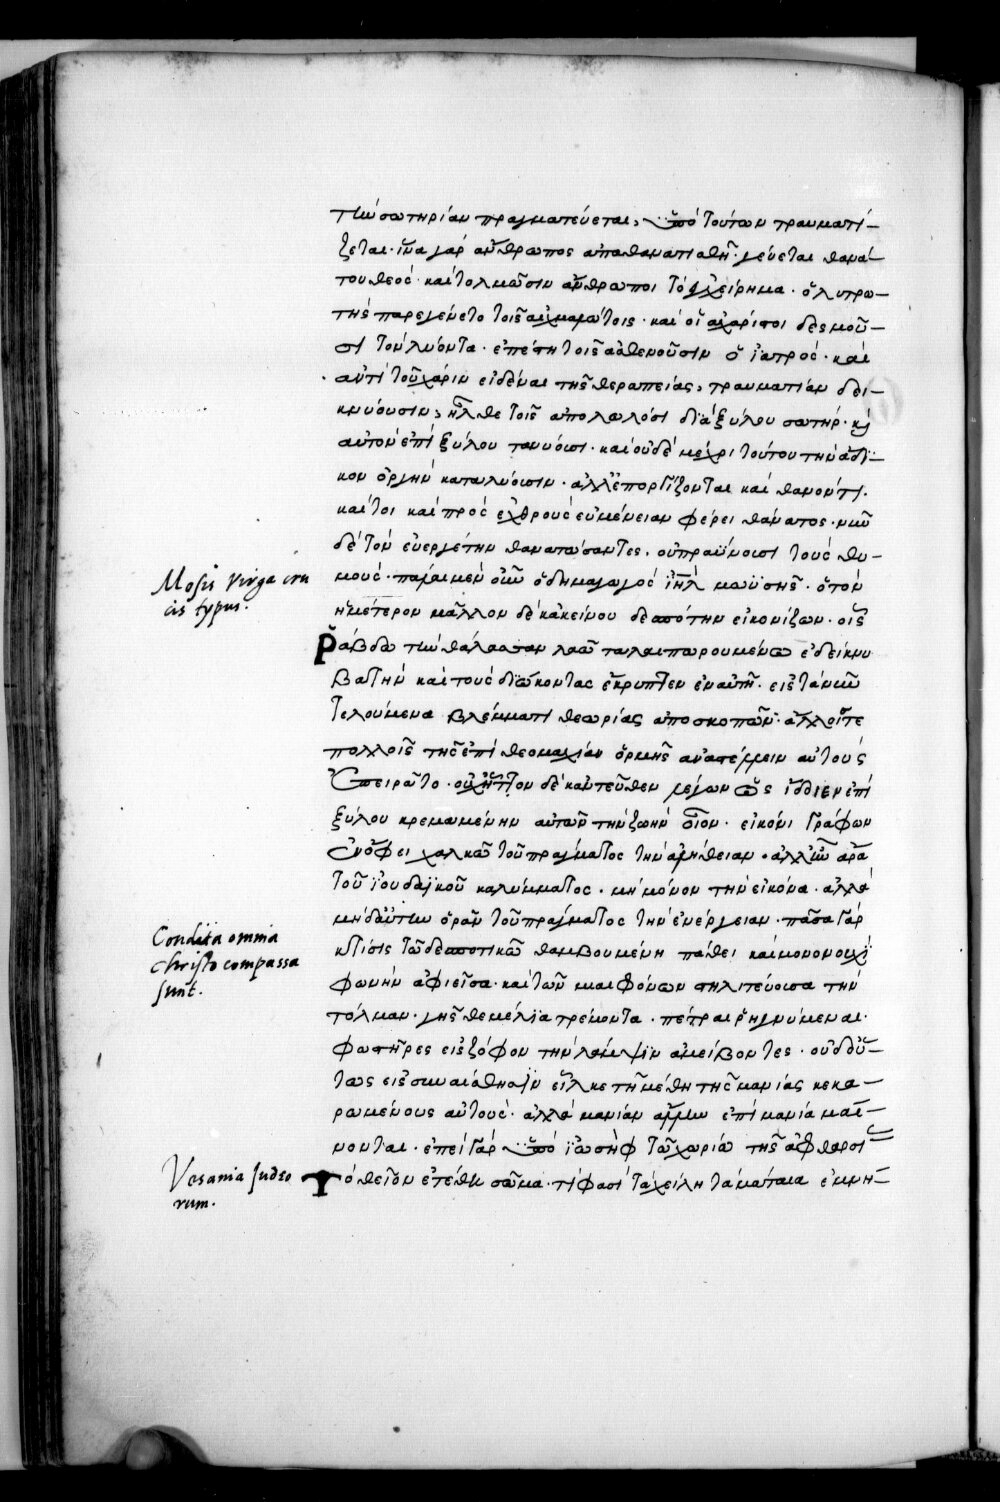 τὴν σωτηρίαν πραγματεύεται, ὑπὸ τούτων τραυματί-
ζεται· ἵνα γὰρ ἄνθρωπος ἀπαθανατισθῆ· γεύεται θανά-
του θεός· καὶ τολμῶσιν ἄνθρωποι τὸ ἐγχείρημα· ὁ λυτρω-
τὴς παρεγένετο τοῖς αἰχμαλώτοις· καὶ οἱ ἀχάριστοι δεσμοῦ-
σι τὸν λύοντα· ἐπέστη τοῖς ἀσθενοῦσιν ὁ ἰατρός· καὶ
ἀντὶ τοῦ χάριν εἰδέναι τῆς θεραπείας, τραυματίαν δει-
κνύουσιν, ἦλθε τοῖς ἀπολωλόσι διὰ ξύλου σωτήρ· κ
αὐτὸν ἐπὶ ξύλου τανύουσι· καὶ οὐδὲ μέχρι τούτου τὴν ἄδι-
κον ὀργὴν καταλύουσιν· ἀλλ' ἐποργίζονται καὶ θανόντι·
καίτοι καὶ πρὸς ἐχθροὺς εὐμένειαν φέρει θάνατος· νῦν
δὲ τὸν εὐεργέτην θανατώσαντες, οὐ πραΰνουσι τοὺς θυ-
μούς· πάλαι μὲν οὖν ὁ δημαγωγὸς ἰηλ μωϋσῆς· ὁ τὸν
ἡμέτερον μᾶλλον δὲ κἀκείνου δεσπότην εἰκονίζων· οἷς
Ῥάβδω τὴν θάλασσαν λαῶ ταλαιπωρουμένω ἐδείκνυ
βατὴν καὶ τοὺς διώκοντας ἔκρυπτεν ἐν αὐτῆ· εἰς τὰ νῦν
τελούμενα βλέμματι θεωρίας ἀποσκοπῶν· ἄλλοις τε
πολλοῖς τῆς ἐπὶ θεομαχίαν ὁρμῆς ἀναστέλλειν αὐτοὺς
ἐπειρᾶτο· οὐχ ἧττον δὲ κἀντεῦθεν λέγων ὡς ἴδοιεν ἐπὶ
ξύλου κρεμαμένην αὐτῶν τὴν ζωὴν οἷον· εἰκόνι γράφων
ἐν ὄφει χαλκῶ τοῦ πράγματος τὴν ἀλήθειαν· ἀλλ' ἦν ἄρα
τοῦ ἰουδαϊκοῦ καλύμματος· μὴ μόνον τὴν εἰκόνα· ἀλλὰ
μηδ' αὐτὴν ὁρᾶν τοῦ πράγματος τὴν ἐνέργειαν· πᾶσα γὰρ
κτίσις τῶ δεσποτικῶ θαμβουμένη πάθει καὶ μονονουχὶ
φωνὴν ἀφιεῖσα· καὶ τῶν μιαιφόνων στηλιτεύουσα τὴν
τόλμαν· γῆς θεμέλια τρέμοντα· πέτραι ῥηγνύμεναι·
φωστῆρες εἰς ζόφον τὴν λάμψιν ἀμείβοντες· οὐδ' οὕ-
τως εἰς συναίσθησιν εἷλκε τῆ μέθη τῆς μανίας κεκα-
ρωμένους αὐτούς· ἀλλὰ μανίαν ἄλλην ἐπὶ μανία μαί-
νονται· ἐπεὶ γὰρ ὑπὸ ἰωσὴφ τῶ χωρίω τῆς ἀφθαρσί
Τὸ θεῖον ἐτέθη σῶμα· τί φασὶ τὰ χείλη τὰ μάταια ἐμνή-
Mosis virga cru
cis typus.
Condita omnia
christo compassa
sunt.
Vesania Judeo
rum.